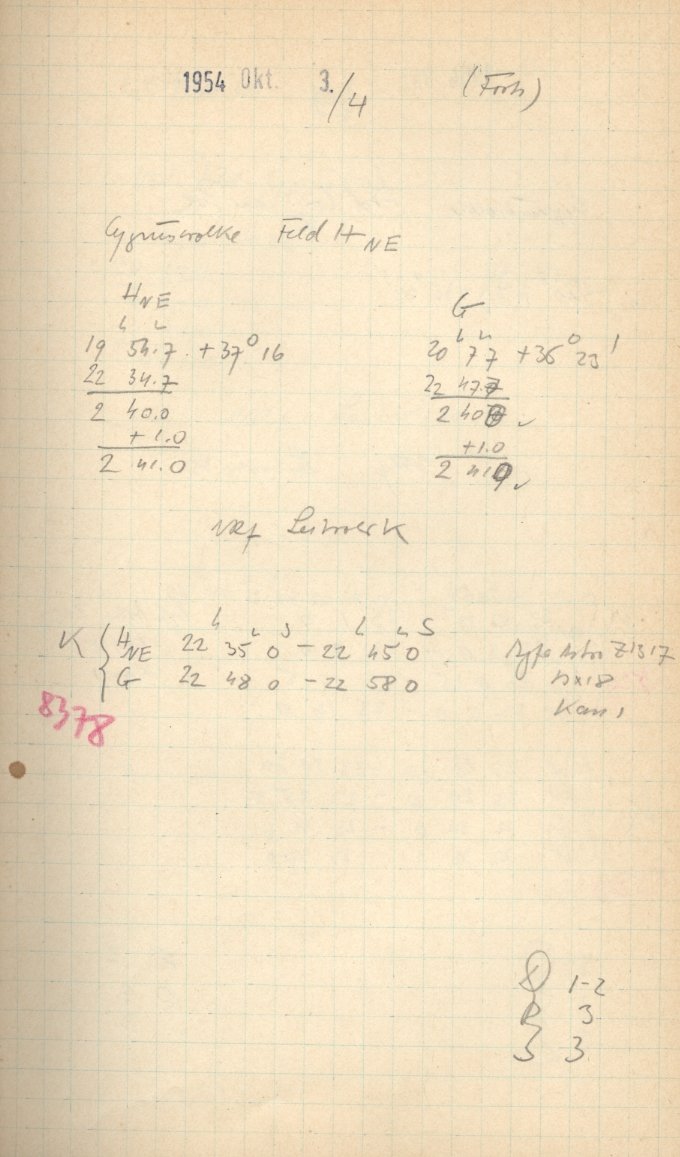 1954 Okt. 3./4
Cygnuswolke Feld H NE
H NE
h m
19 54.7 +37° 16
22 34.7
2 40.0
+1.0
2 41.0
G
h m
20 7 7 +36° 23'
22 47.7
2 40
+1.0
2 41.0
Leitwerk
h m s h m s
K { H NE 22 35 0 - 22 45 0
G 22 48 0 - 22 58 0
Agfa Astro Z1317
9x18
8378
1-2
R 3
S 3